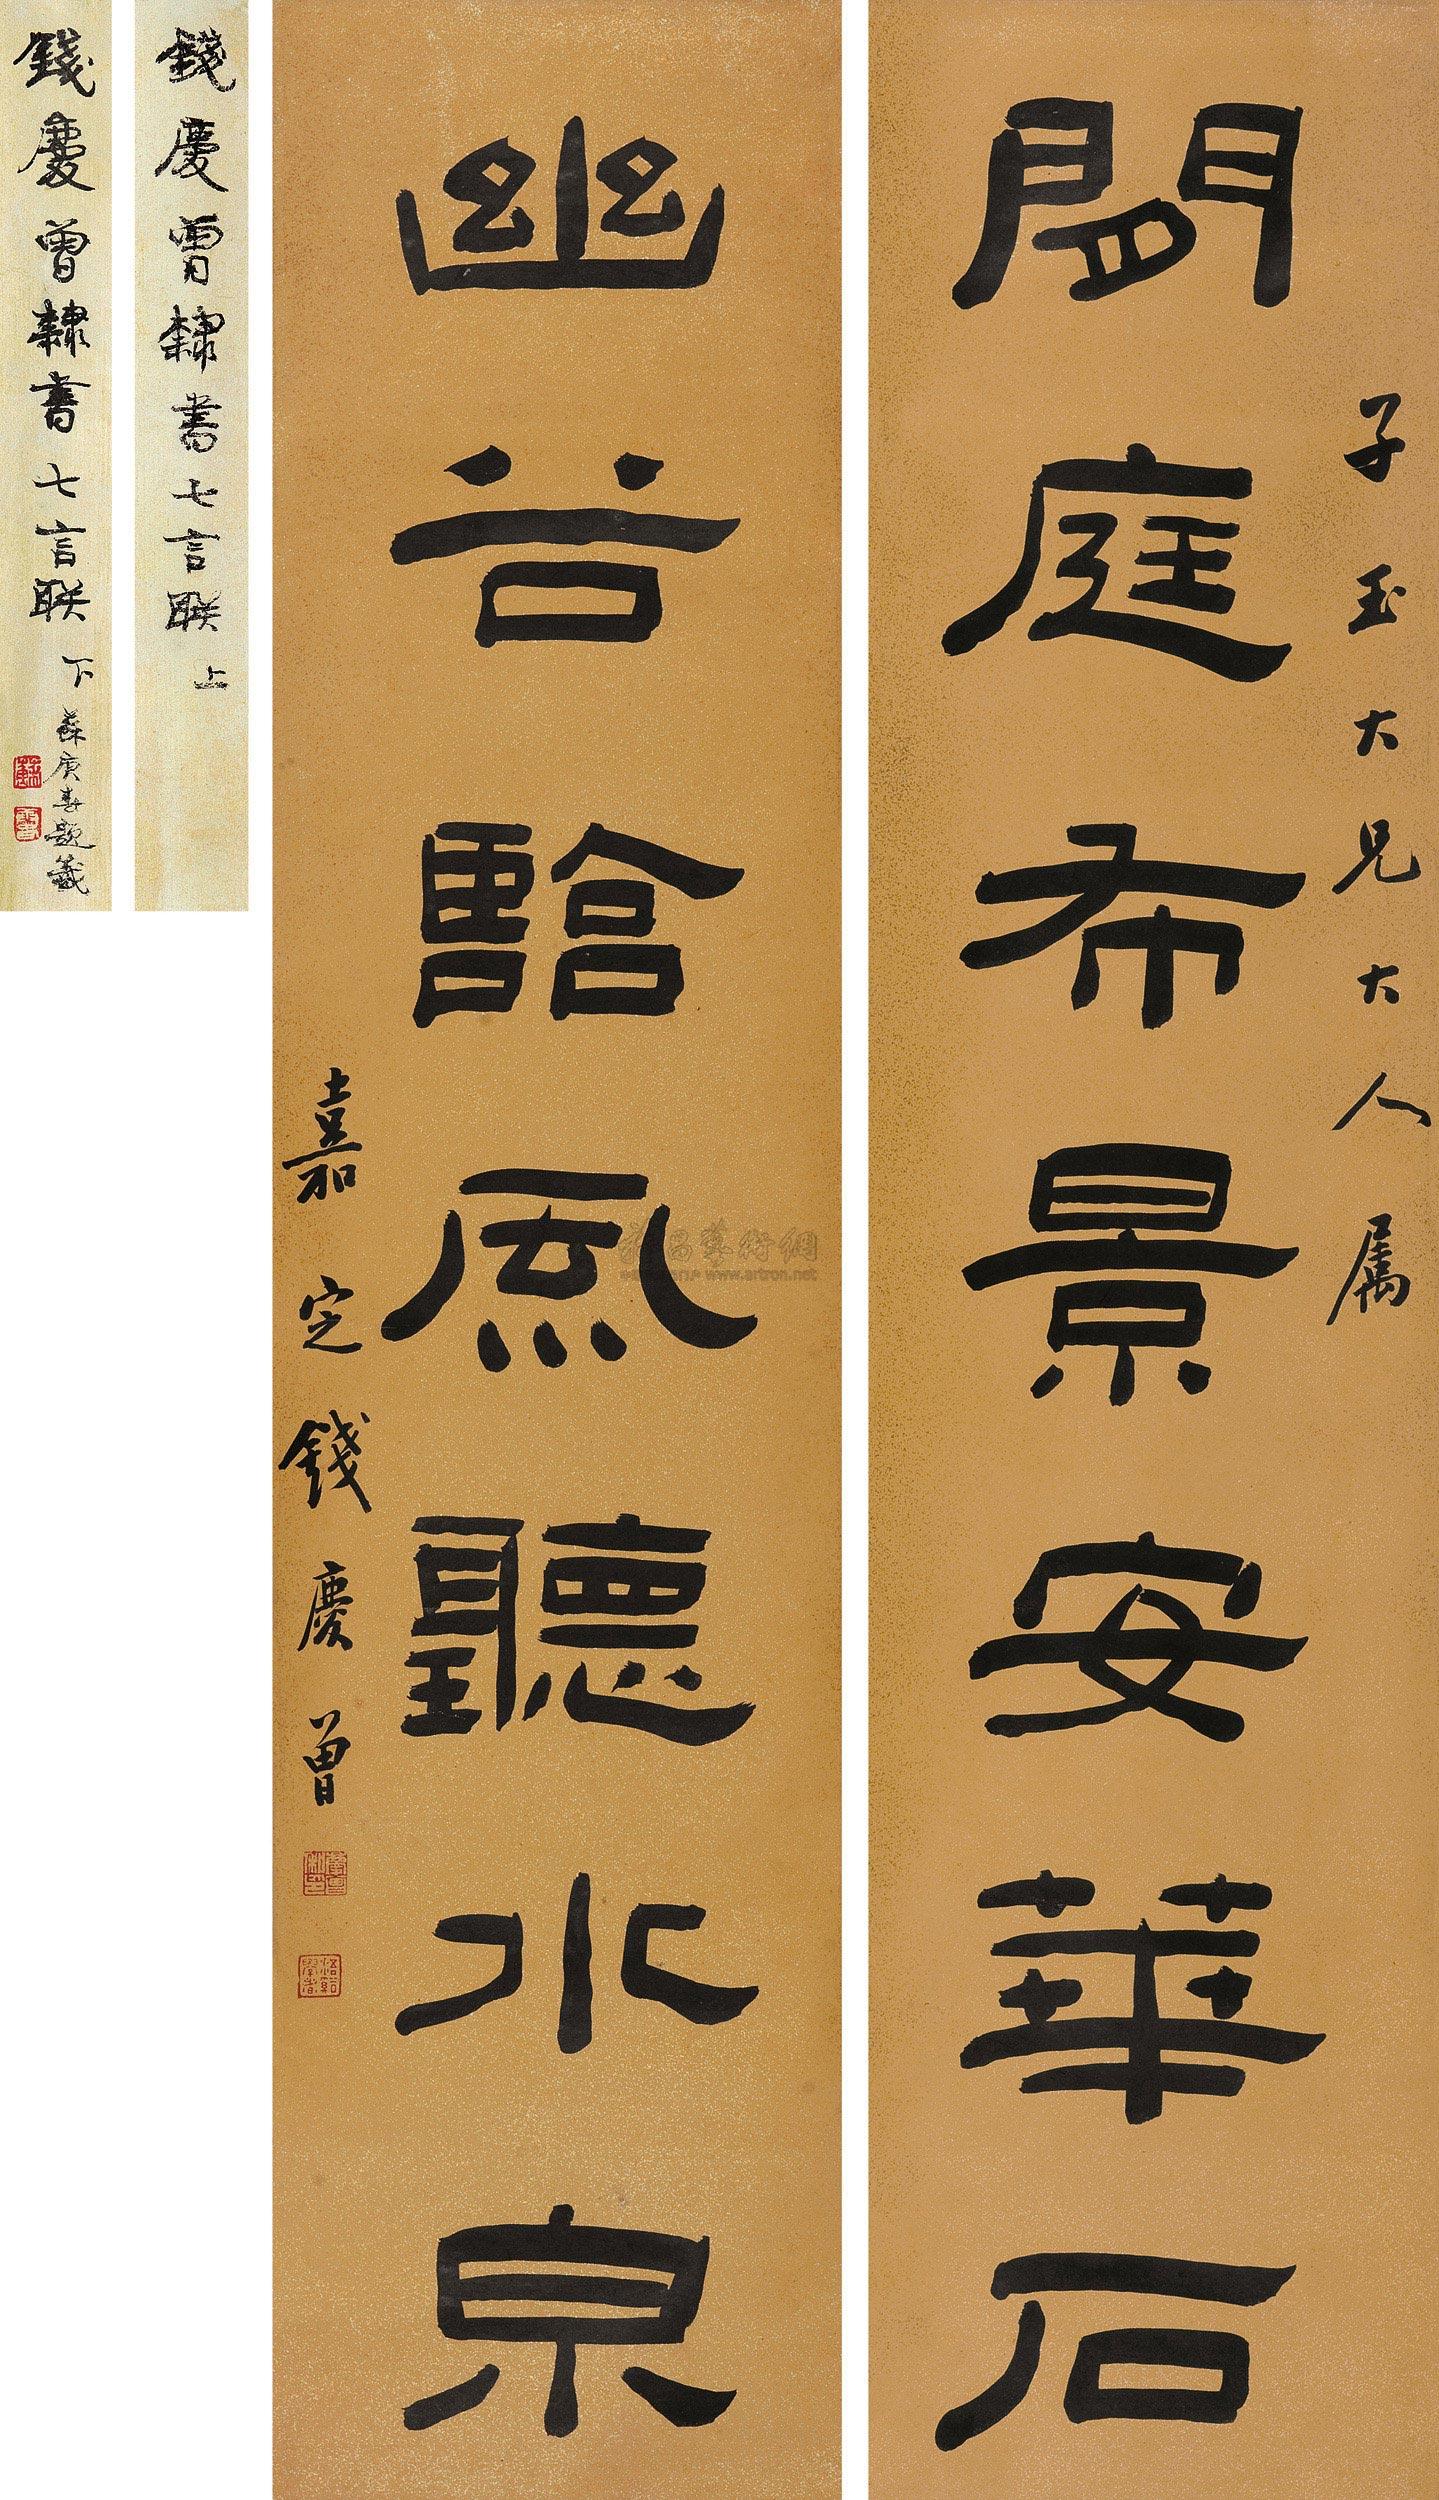 子玉大兄大人属
閒庭布景安華石
幽谷風聽水泉
嘉定錢慶曾
錢慶曾隸書七言联 上
錢慶曾隸書七言联 下
蘇庚春題籤
雅昌藝術網
www.artron.net